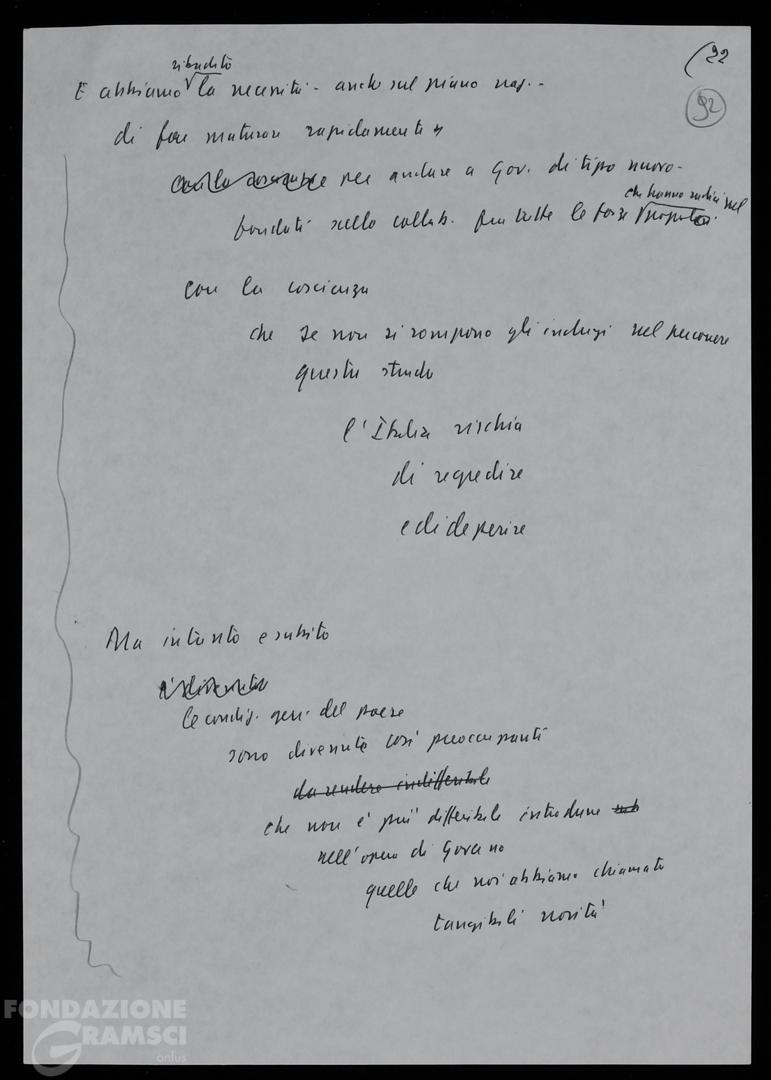 22
92
ribadito
E abbiamo la necessità - anche sul piano naz. -
di fare maturare rapidamente
con la coscienza per andare a Gov. di tipo nuovo -
che hanno radici nel
fondati sulla collab. fra tutte le forze popolo.
con la coscienza
che se non si rompono gli indugi nel percorrere
questa strada
l'Italia rischia
di regredire
e di deperire
Ma intanto e subito
è diventato
le condiz. gen. del paese
sono divenute così preoccupanti
da rendere indifferibile
che non è più differibile introdurre
nell'opera di Governo
quelle che noi abbiamo chiamate
tangibili novità
FONDAZIONE
GRAMSCI
onlus